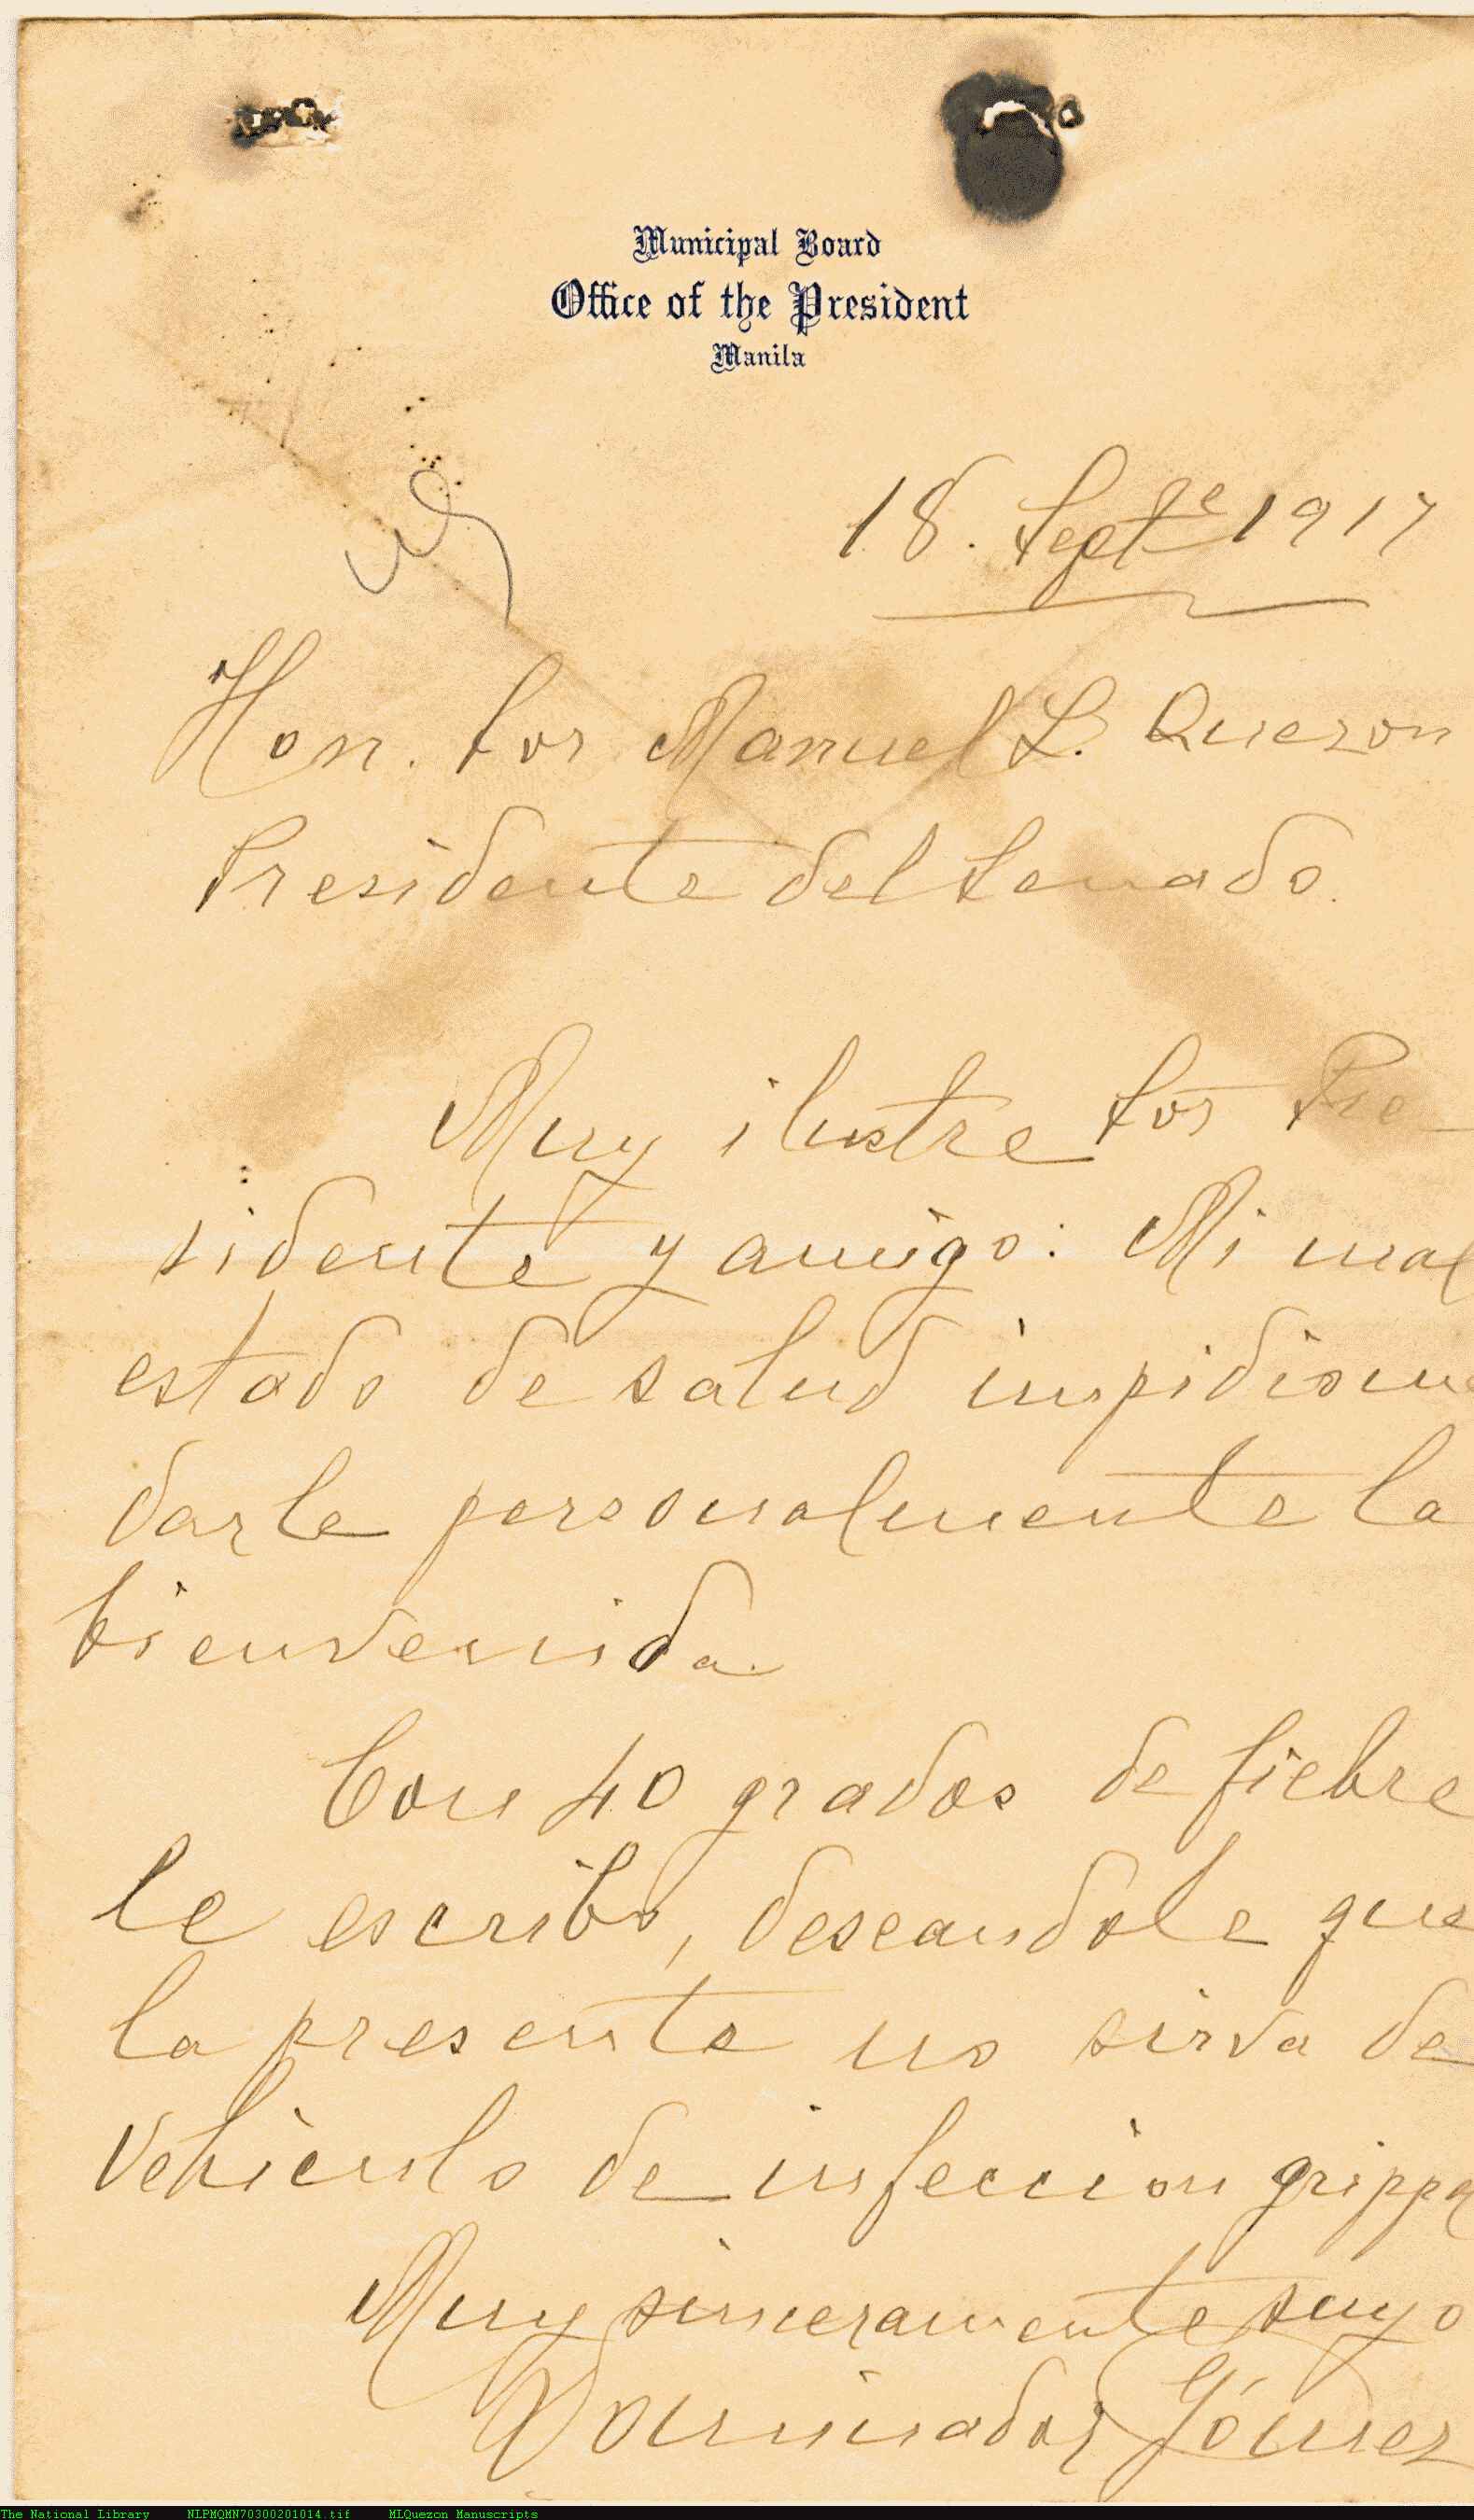 Municipal Board
Office of the President
Manila
18. Septe 1917
Hon. Sor Manuel L. Quezon
Presidente del Senado.
Muy ilustre Sor Pre-
sidente y amigo: Mi mal
estado de salud impidiome
darle personalmente la
bienvenida.
Con 40 grados de fiebre
le escribo, deseandole que
la presente no sirva de
vehiculo de infeccion grippa
Muy sinceramente suyo
Dominador Gómez
The National Library NLPMQMN70300201014.tif MLQuezon Manuscripts